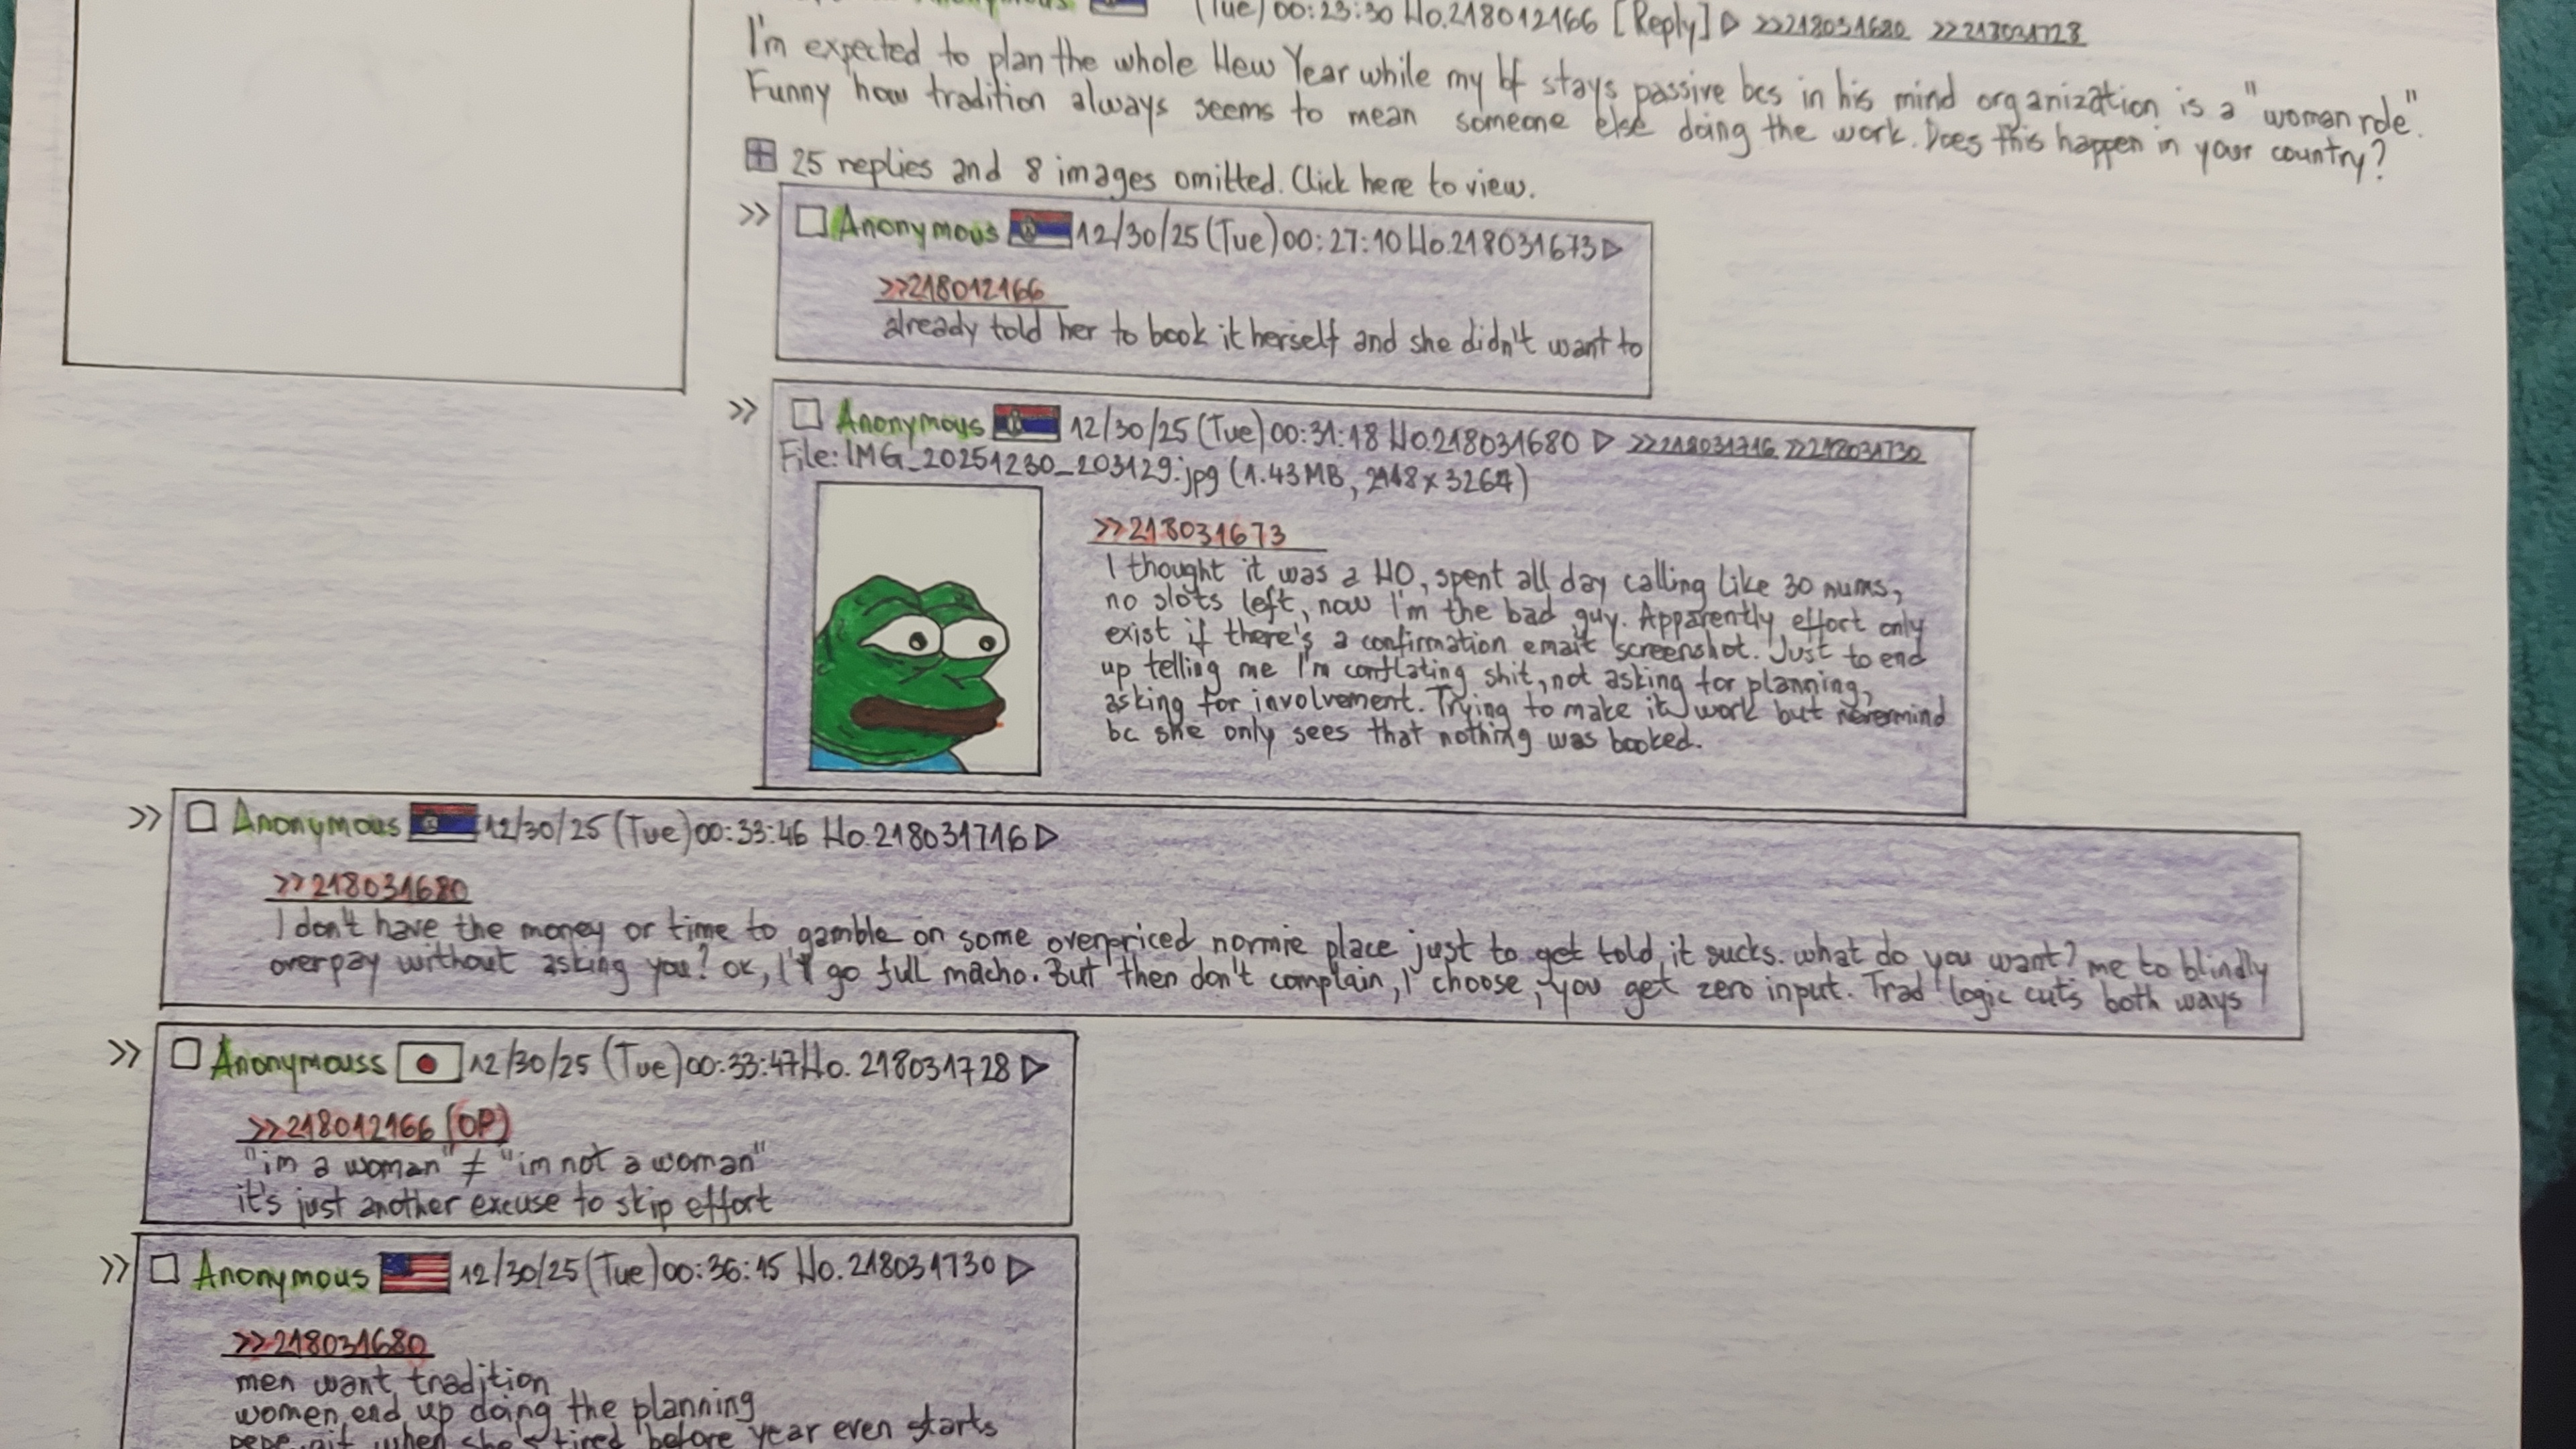 (Tue) 00:23:30 No.218012166 [Reply] ▷ >>218031680 >>218031728
I'm expected to plan the whole New Year while my bf stays passive bcs in his mind organization is a "woman role".
Funny how tradition always seems to mean someone else doing the work. Does this happen in your country?
25 replies and 8 images omitted. Click here to view.
>> Anonymous 12/30/25 (Tue) 00:27:10 No.218031673 ▷
>>218012166
already told her to book it herself and she didn't want to
>> Anonymous 12/30/25 (Tue) 00:31:18 No.218031680 ▷ >>218031716 >>218031730
File: IMG_20251230_203129.jpg (1.43MB, 2448x3264)
>>218031673
I thought it was a NO, spent all day calling like 30 nums,
no slots left, now I'm the bad guy. Apparently effort only
exist if there's a confirmation email screenshot. Just to end
up telling me I'm conflating shit, not asking for planning,
asking for involvement. Trying to make it work but nevermind
bc she only sees that nothing was booked.
>> Anonymous 12/30/25 (Tue) 00:33:46 No.218031716 ▷
>>218031680
I don't have the money or time to gamble on some overpriced normie place just to get told it sucks. what do you want? me to blindly
overpay without asking you? ok, I'll go full macho. But then don't complain, I choose, you get zero input. Trad logic cuts both ways
>> Anonymouss 12/30/25 (Tue) 00:33:47 No. 218031728 ▷
>>218012166 (OP)
"im a woman" ≠ "im not a woman"
it's just another excuse to skip effort
>> Anonymous 12/30/25 (Tue) 00:36:15 No. 218031730 ▷
>>218031680
men want tradition
women end up doing the planning
when she's tired before year even starts